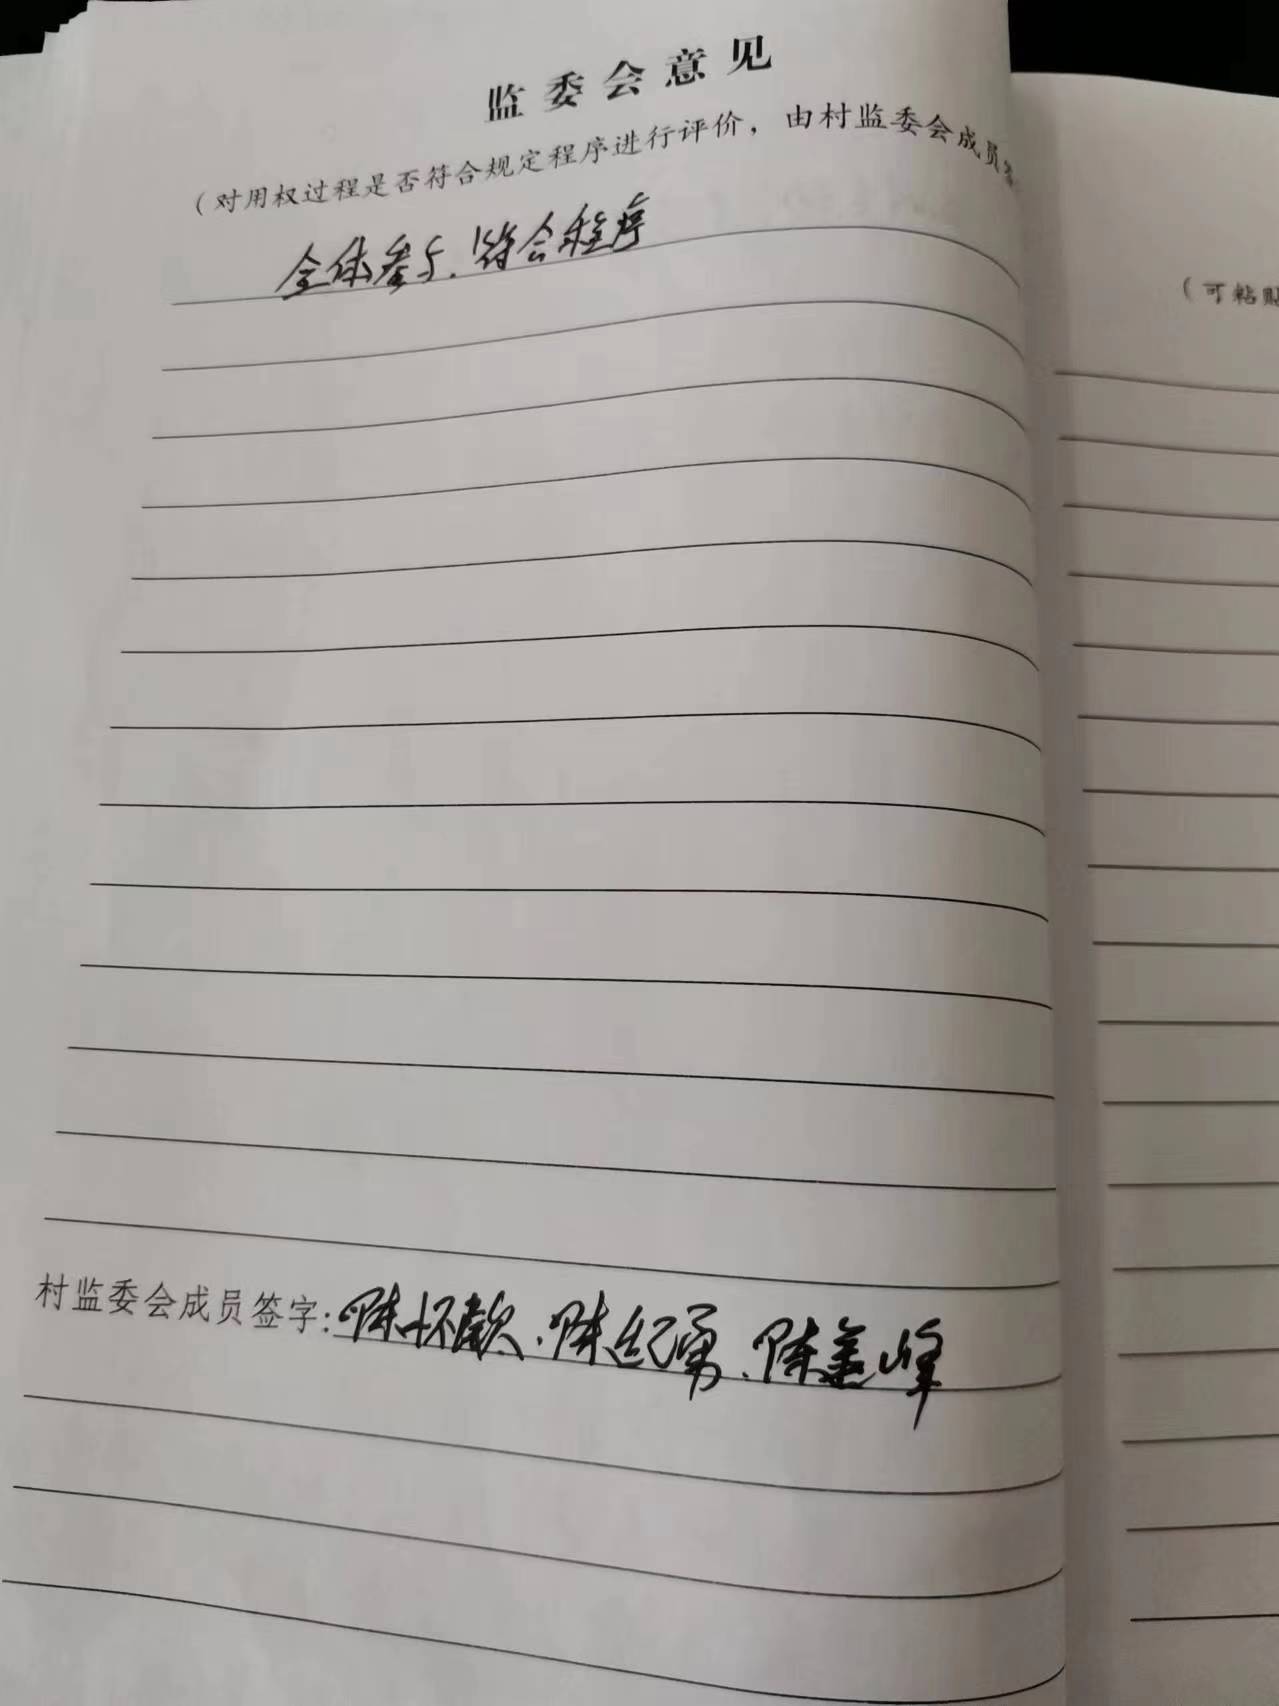 监委会意见
（对用权过程是否符合规定程序进行评价，由村监委会成员签
全体参与.符合程序
村监委会成员签字:陈怀款.陈纪勇.陈金峰
（可粘贴